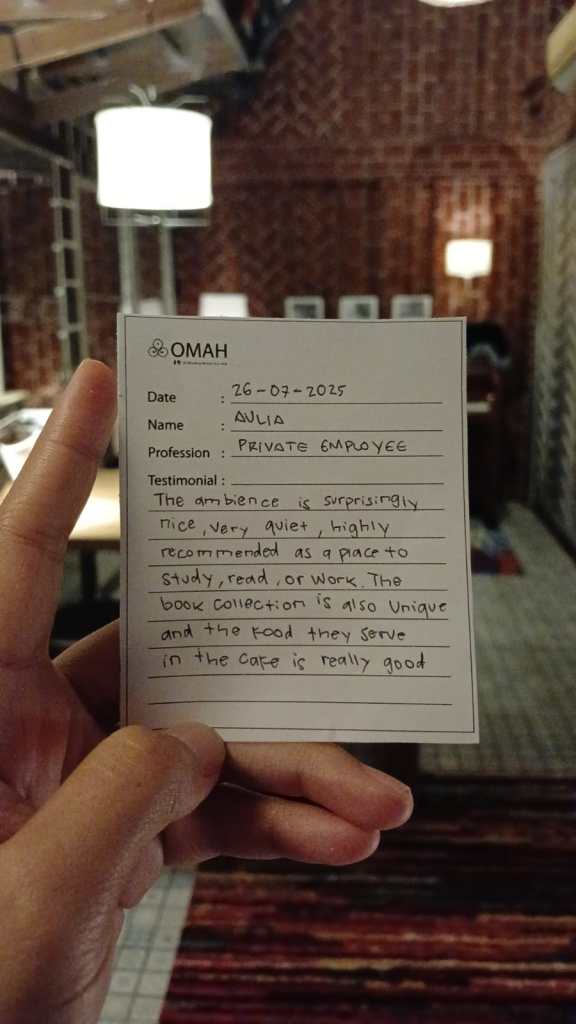 OMAH
Date : 26-07-2025
Name : AULIA
Profession : PRIVATE EMPLOYEE
Testimonial :
The ambience is surprisingly
nice, very quiet, highly
recommended as a place to
study, read, or work. The
book collection is also unique
and the food they serve
in the cafe is really good